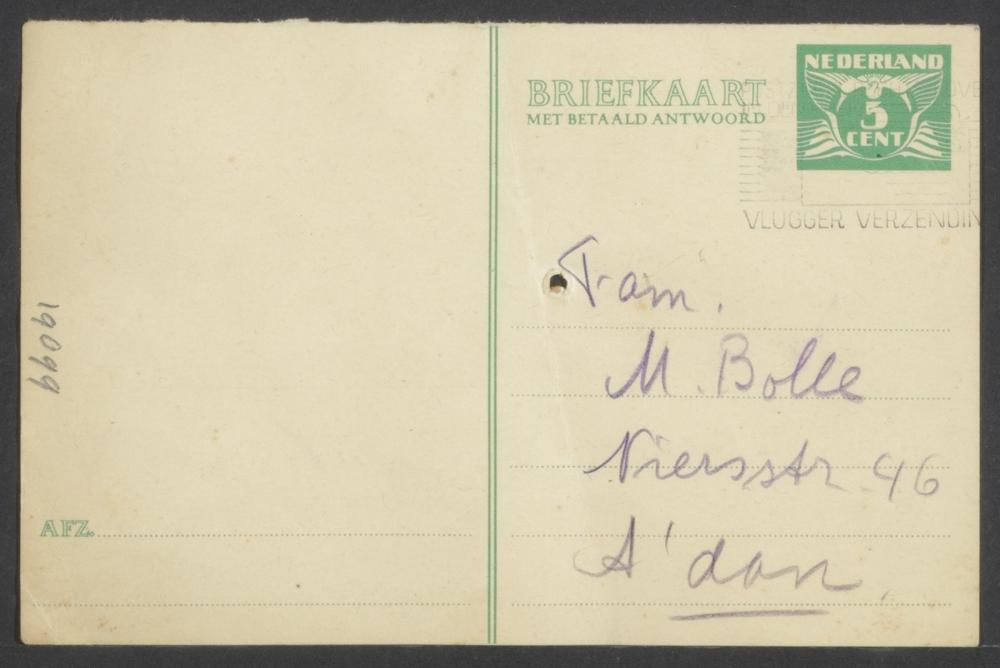 BRIEFKAART
MET BETAALD ANTWOORD
NEDERLAND
5
CENT
VLUGGER VERZENDIN
Fam.
M. Bolle
Niersstr 46
A'dam
AFZ.
19099